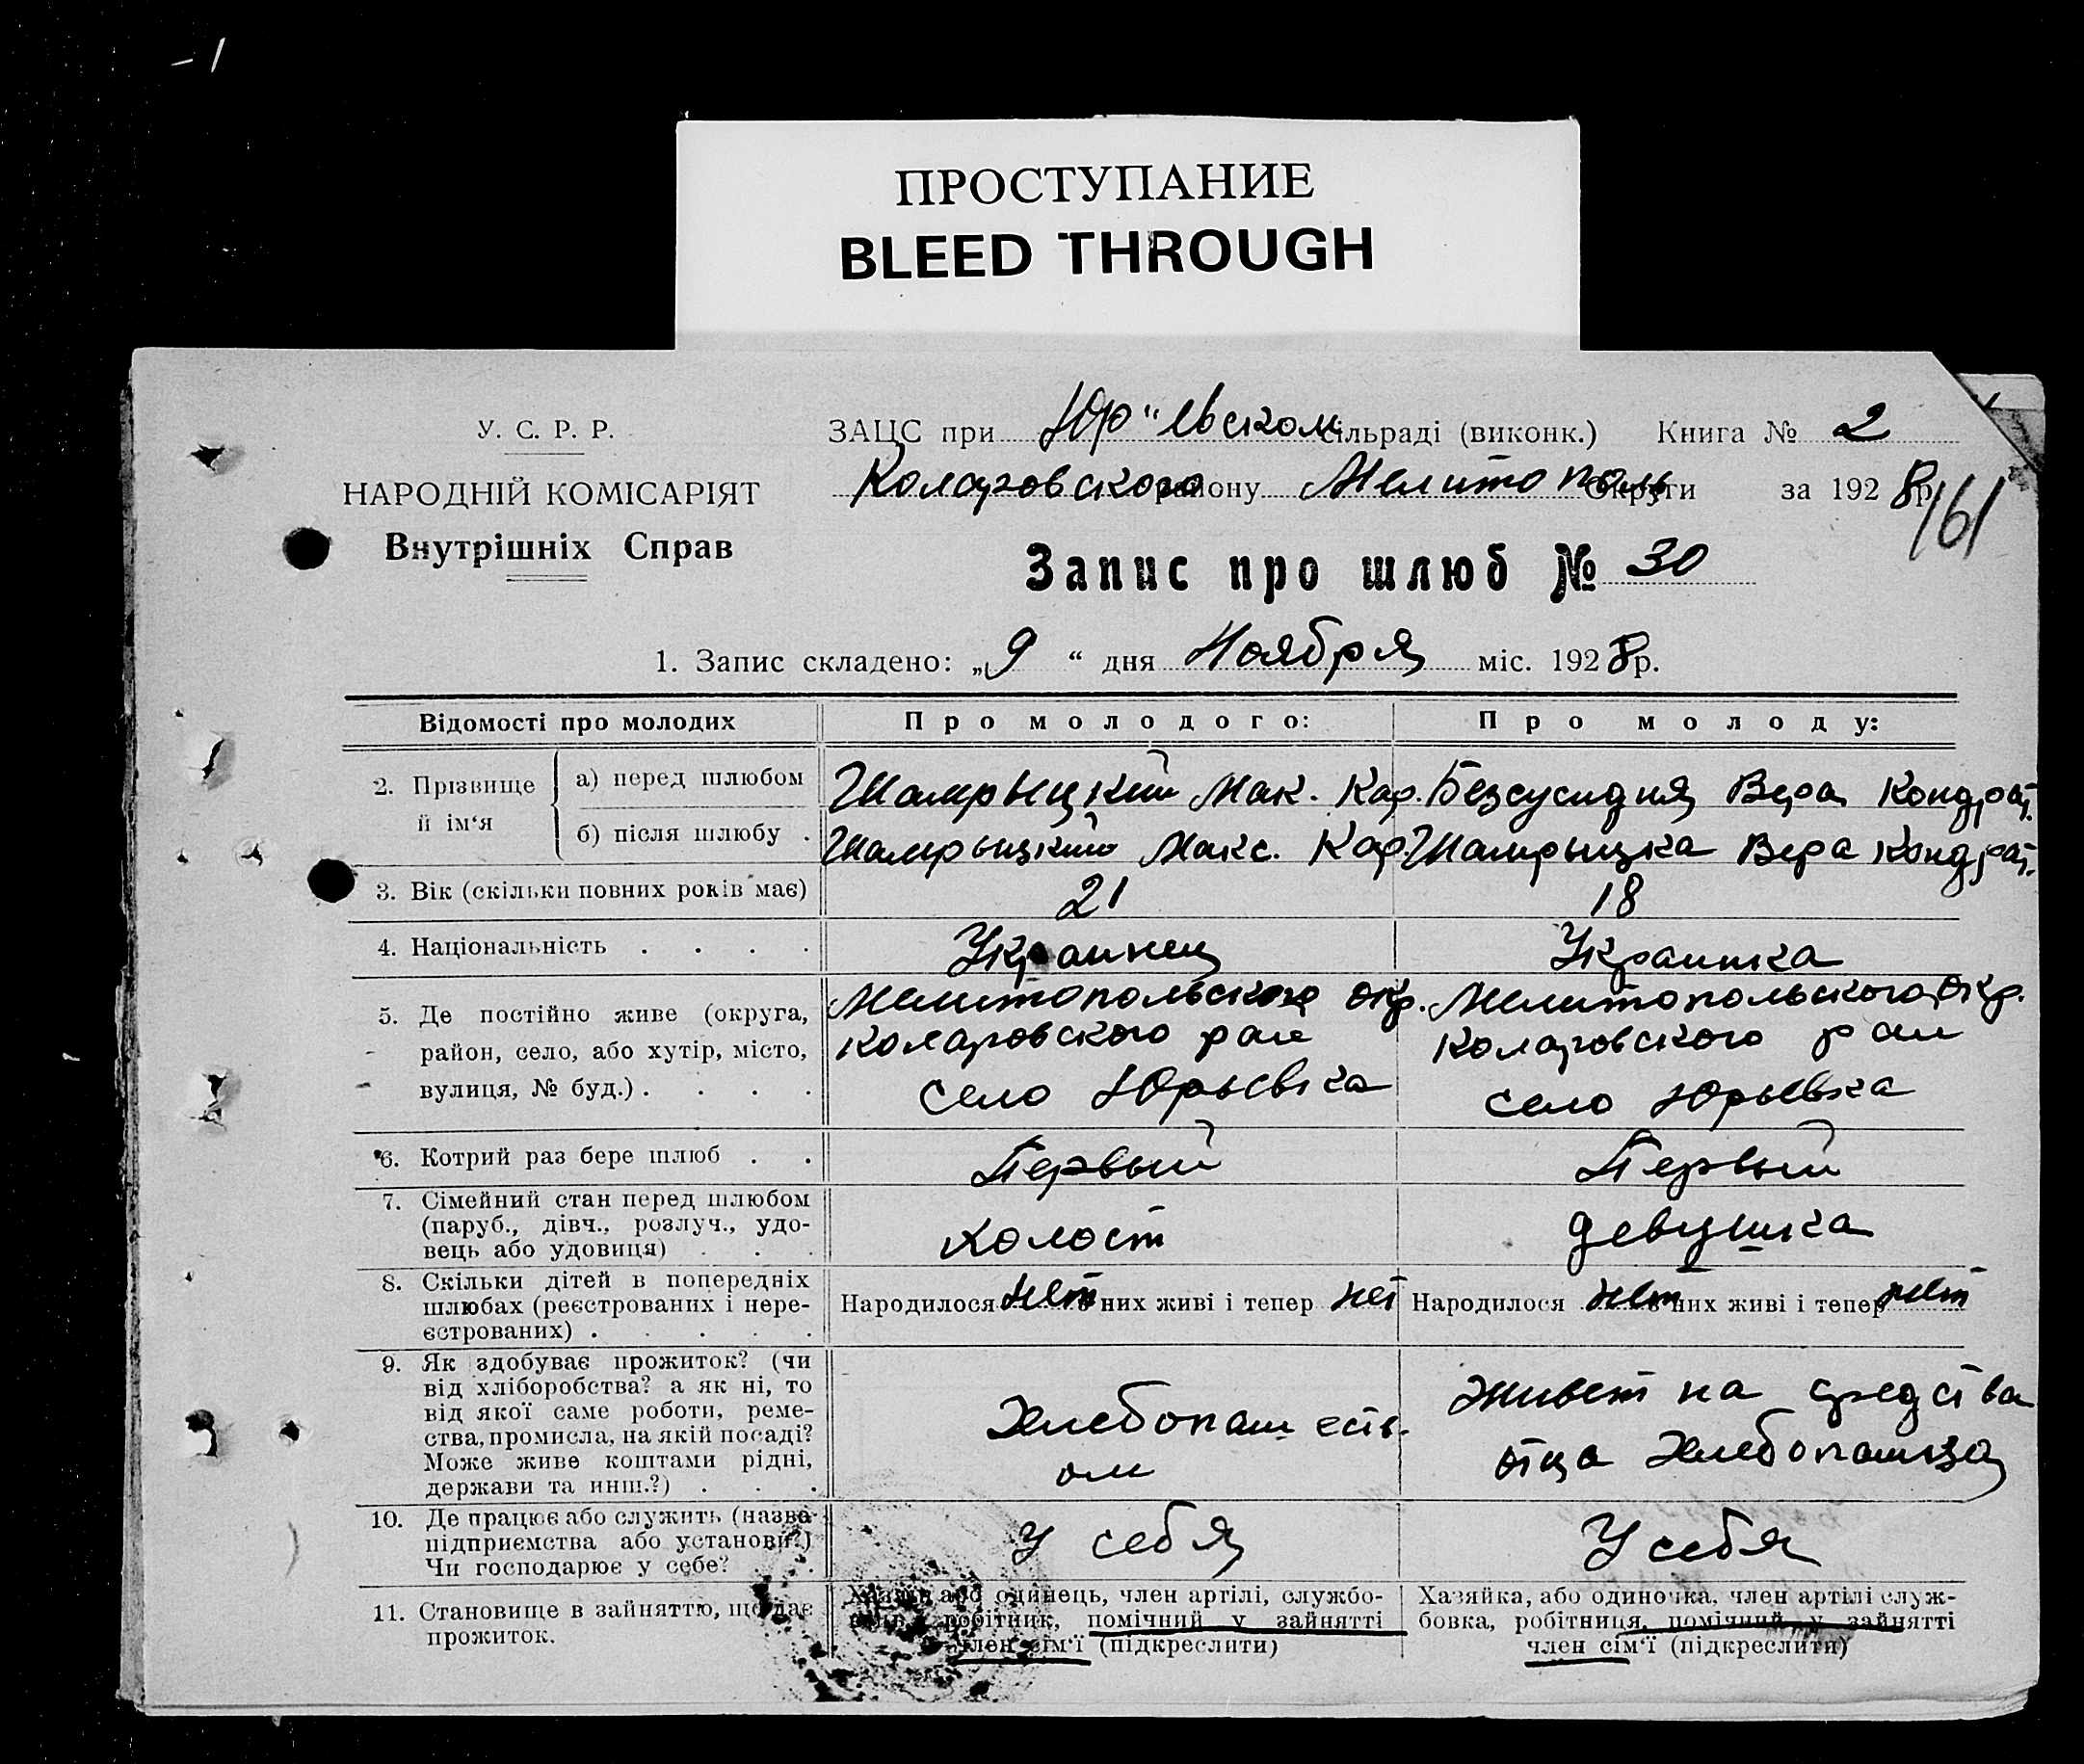 ПРОСТУПАНИЕ
BLEED THROUGH
У. С. Р. Р.
НАРОДНІЙ КОМІСАРІЯТ
Внутрішніх Справ
ЗАЦС при Юр"евском сільраді (виконк.) Книга № 2
Коларовского району Мелитополь Округи за 1928 р.
161
Запис про шлюб № 30
1. Запис складено: „9“ дня Ноября міс. 1928 р.
Відомості про молодих
Про молодого:
Про молоду:
2. Прізвище й ім‘я
а) перед шлюбом
Шамрыцкий Мак. Кар.
Безсусидня Вера Кондрат.
б) після шлюбу .
Шамрыцкий Макс. Кар.
Шамрыцка Вера Кондрат.
3. Вік (скільки повних років має)
21
18
4. Національність . . . .
Украинец
Украинка
5. Де постійно живе (округа,
район, село, або хутір, місто,
вулиця, № буд.) . . . .
Мелитопольского окр.
Коларовского рай
село Юрьевка
Мелитопольского Окр.
Коларовского рай
село Юрьевка
6. Котрий раз бере шлюб . .
Первый
Первый
7. Сімейний стан перед шлюбом
(паруб., дівч., розлуч., удо-
вець або удовиця) . . .
холост
девушка
8. Скільки дітей в попередніх
шлюбах (реєстрованих і нере-
єстрованих) . . . . .
Народилося нет з них живі і тепер нет
Народилося нет з них живі і тепер нет
9. Як здобуває прожиток? (чи
від хліборобства? а як ні, то
від якої саме роботи, реме-
ства, промисла, на якій посаді?
Може живе коштами рідні,
держави та инш.?) . . .
Хлебопашеств-
ом
Живет на средства
отца Хлебопашца
10. Де працює або служить (назва
підприємства або установи?)
Чи господарює у себе? .
У себя
У себя
11. Становище в зайняттю, що дає
прожиток.
Хазяїн або одинець, член артілі, службо-
вець, робітник, помічний у зайнятті
член сім‘ї (підкреслити)
Хазяйка, або одиночка, член артілі служ-
бовка, робітниця, помічний у зайнятті
член сім‘ї (підкреслити)